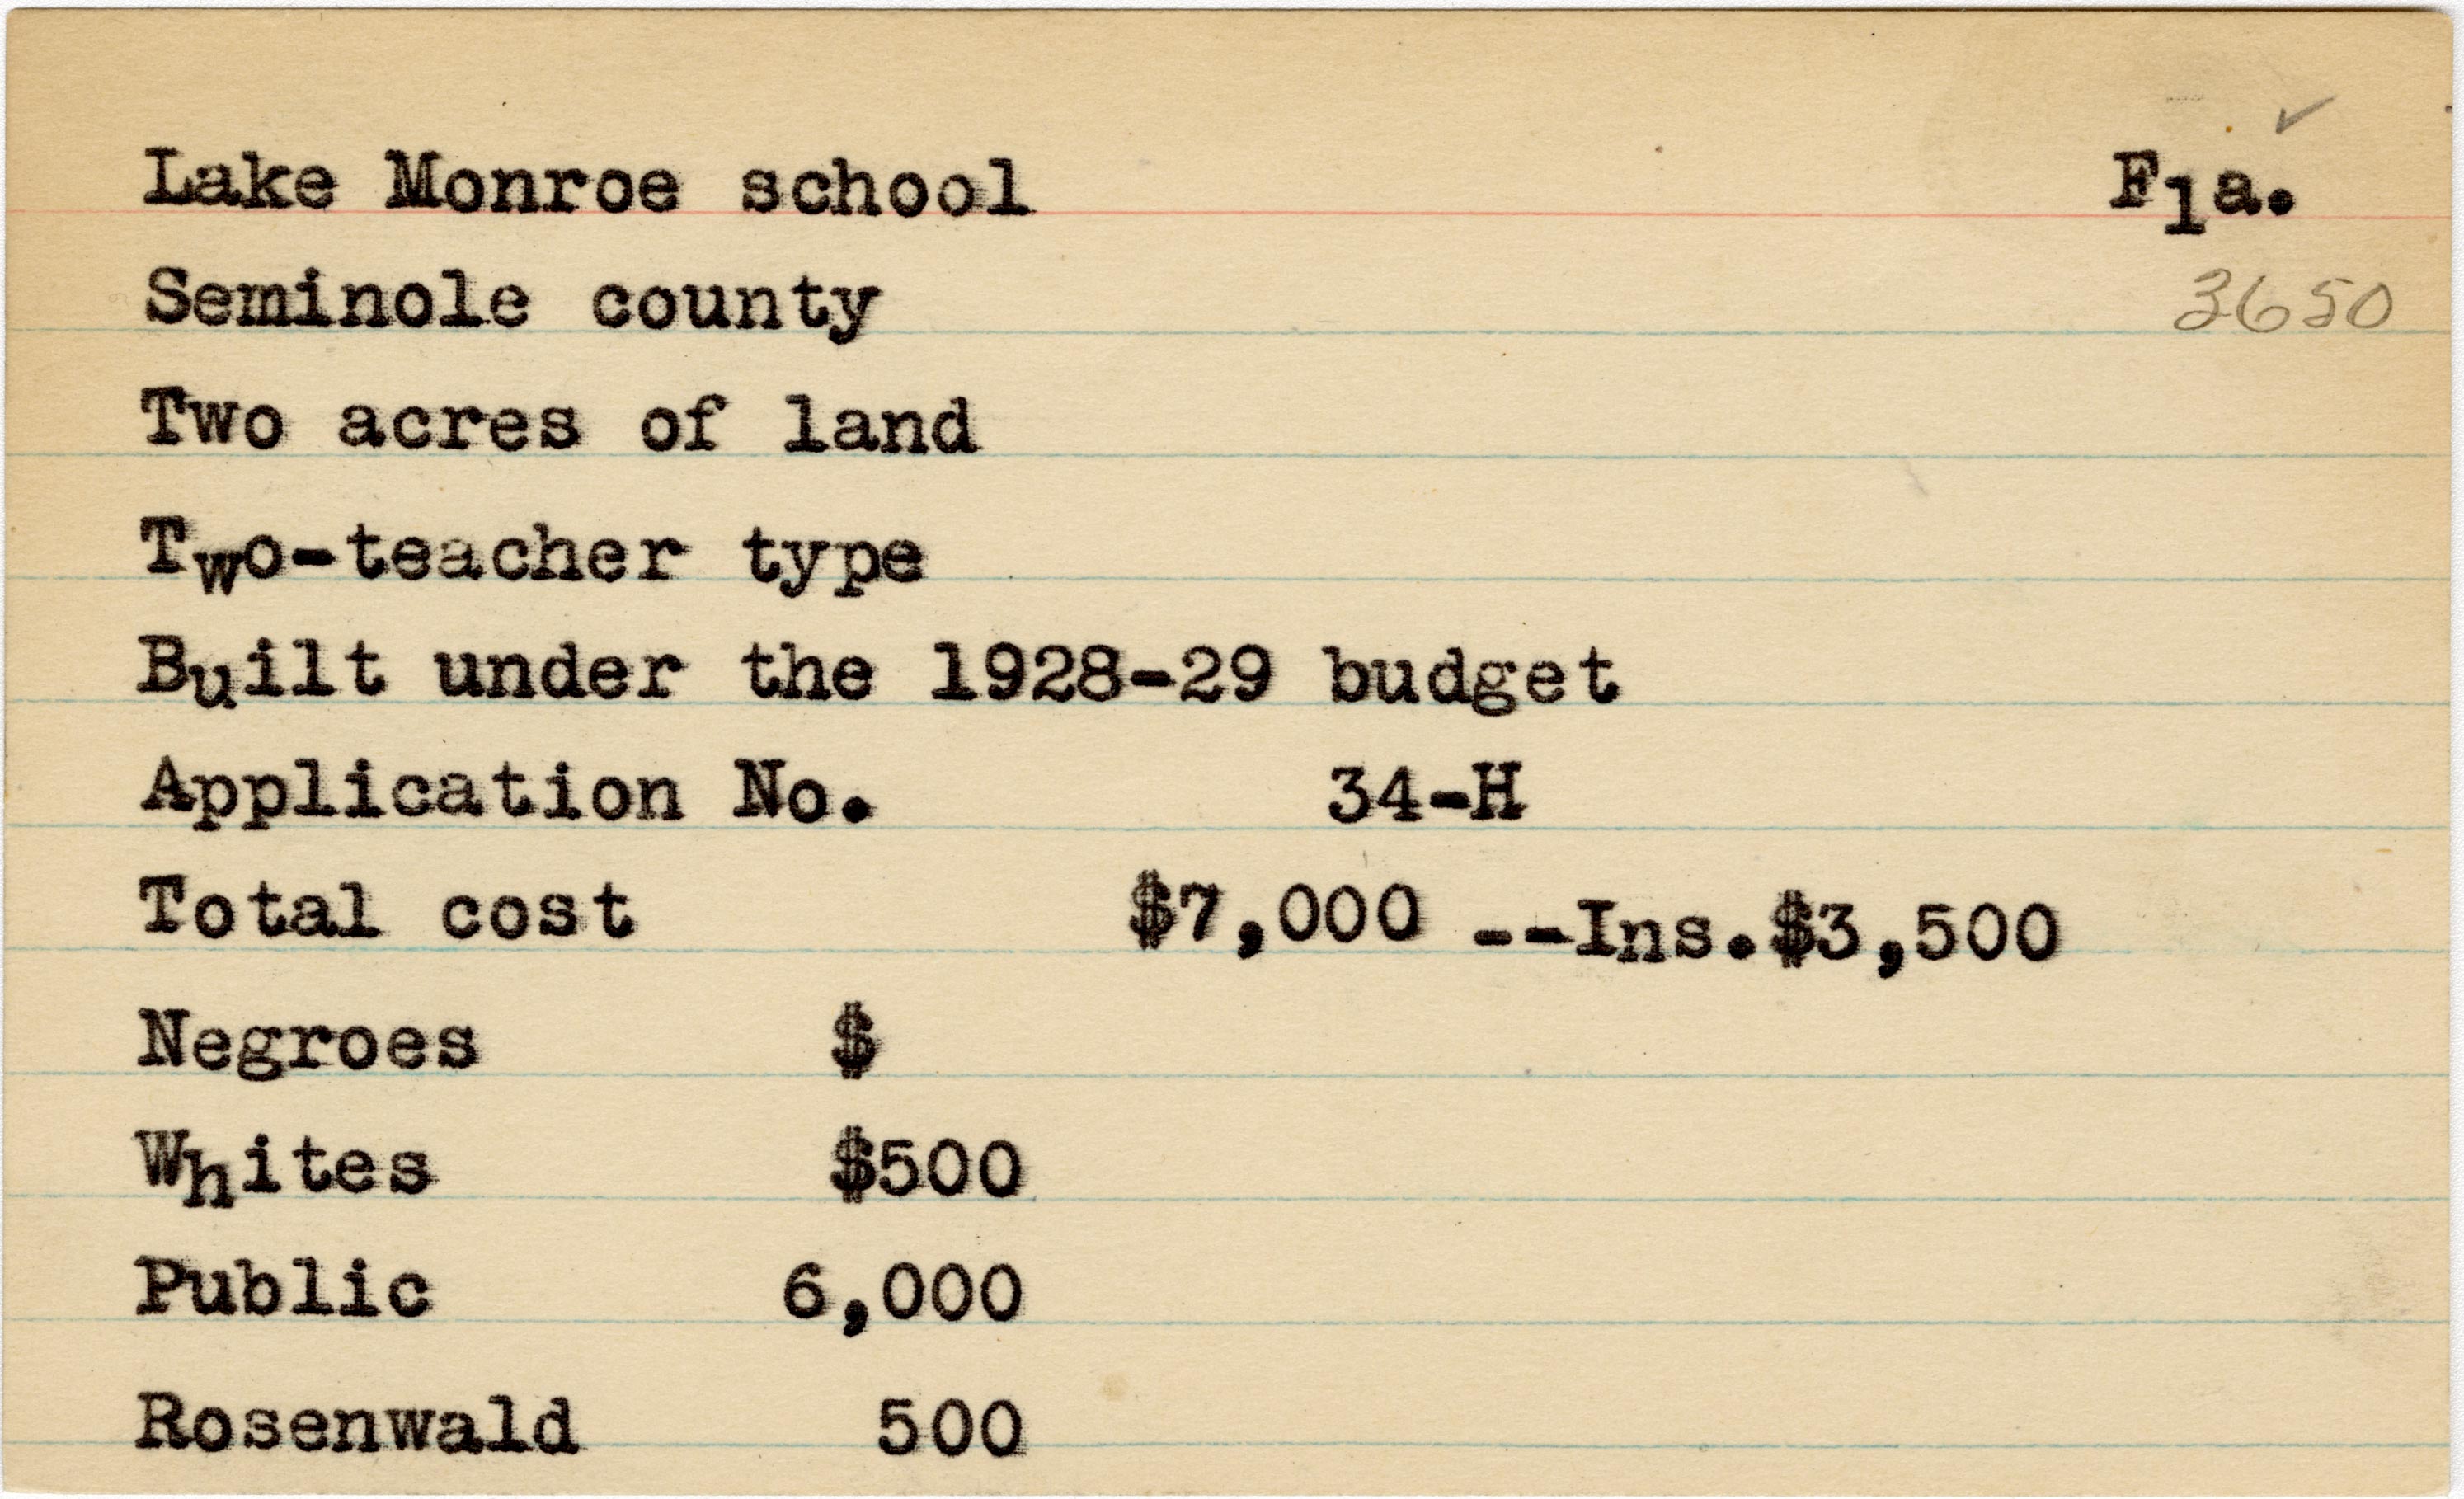 Lake Monroe school Fla.
Seminole county 3650
Two acres of land
Two-teacher type
Built under the 1928-29 budget
Application No. 34-H
Total cost $7,000 --Ins.$3,500
Negroes $
Whites $500
Public 6,000
Rosenwald 500